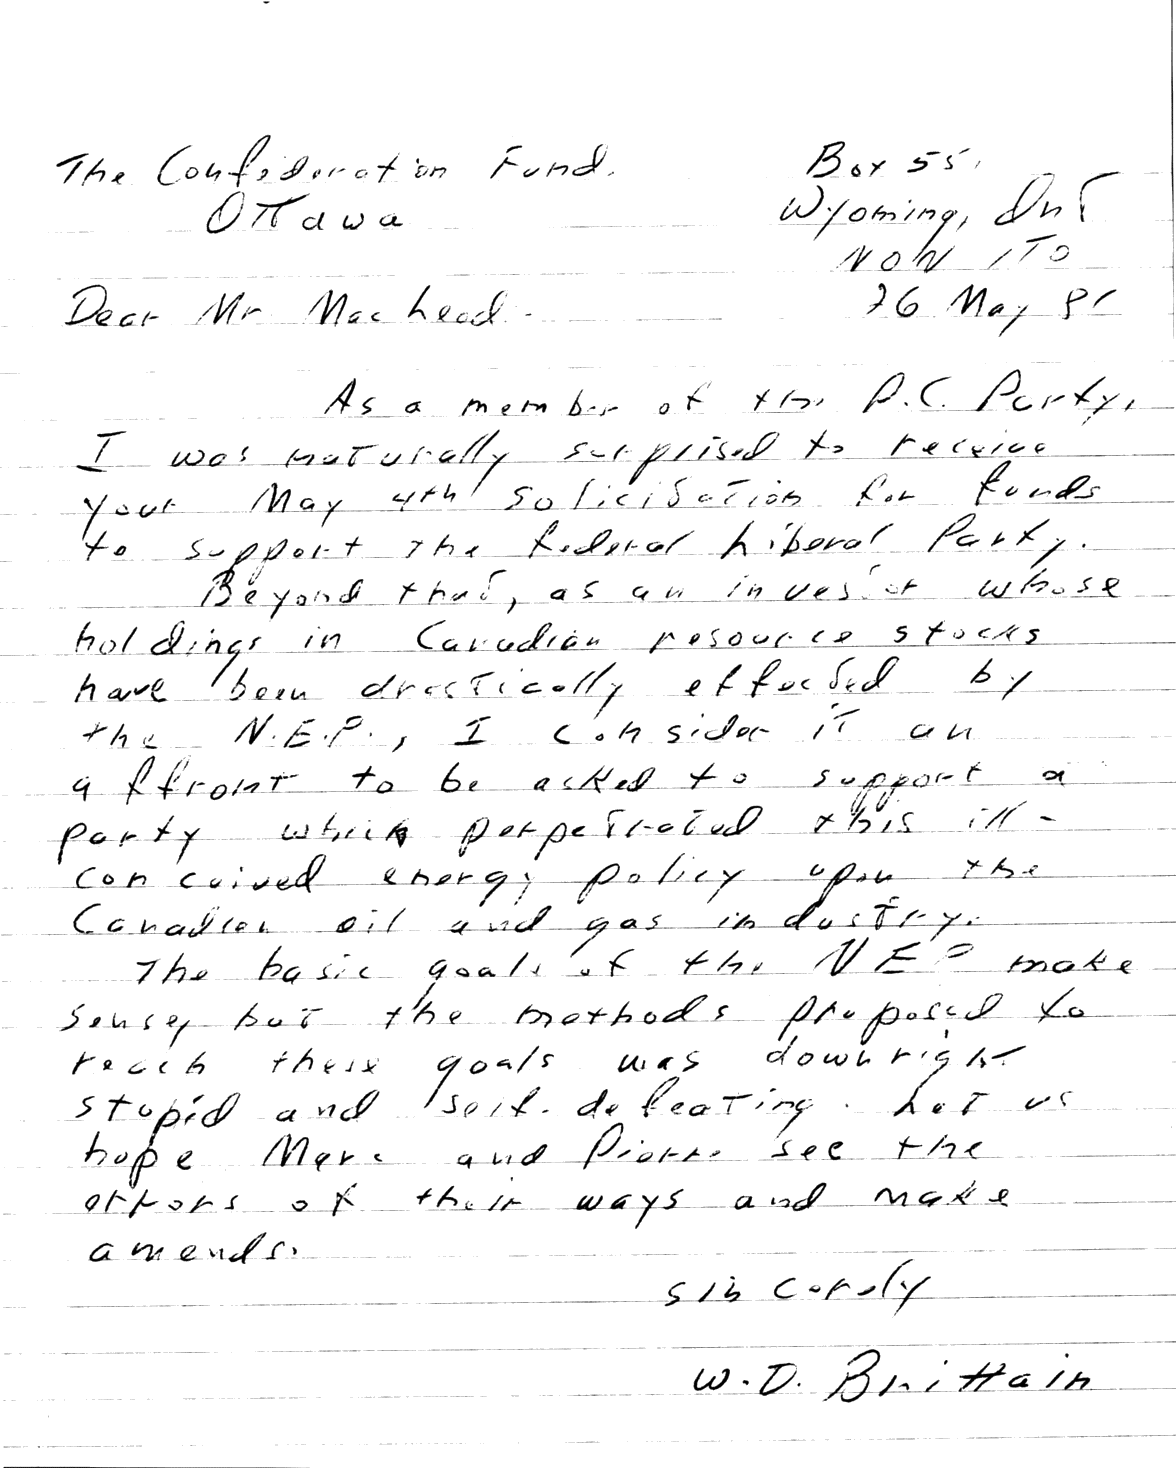 The Confederation Fund.
Ottawa
Box 55,
Wyoming, Ont
N0N 1T0
26 May 81
Dear Mr Mac head.
As a member of the P.C. Party,
I was naturally surprised to receive
your May 4th solicitation for funds
to support the federal Liberal Party.
Beyond that, as an investor whose
holdings in Canadian resource stocks
have been drastically effected by
the N.E.P., I consider it an
affront to be asked to support a
party which perpetrated this ill-
conceived energy policy upon the
Canadian oil and gas industry.
The basic goals of the NEP make
sense, but the methods proposed to
reach these goals was downright
stupid and self-defeating. Let us
hope Marc and Pierre see the
errors of their ways and make
amends.
Sincerely
W.D. Brittain